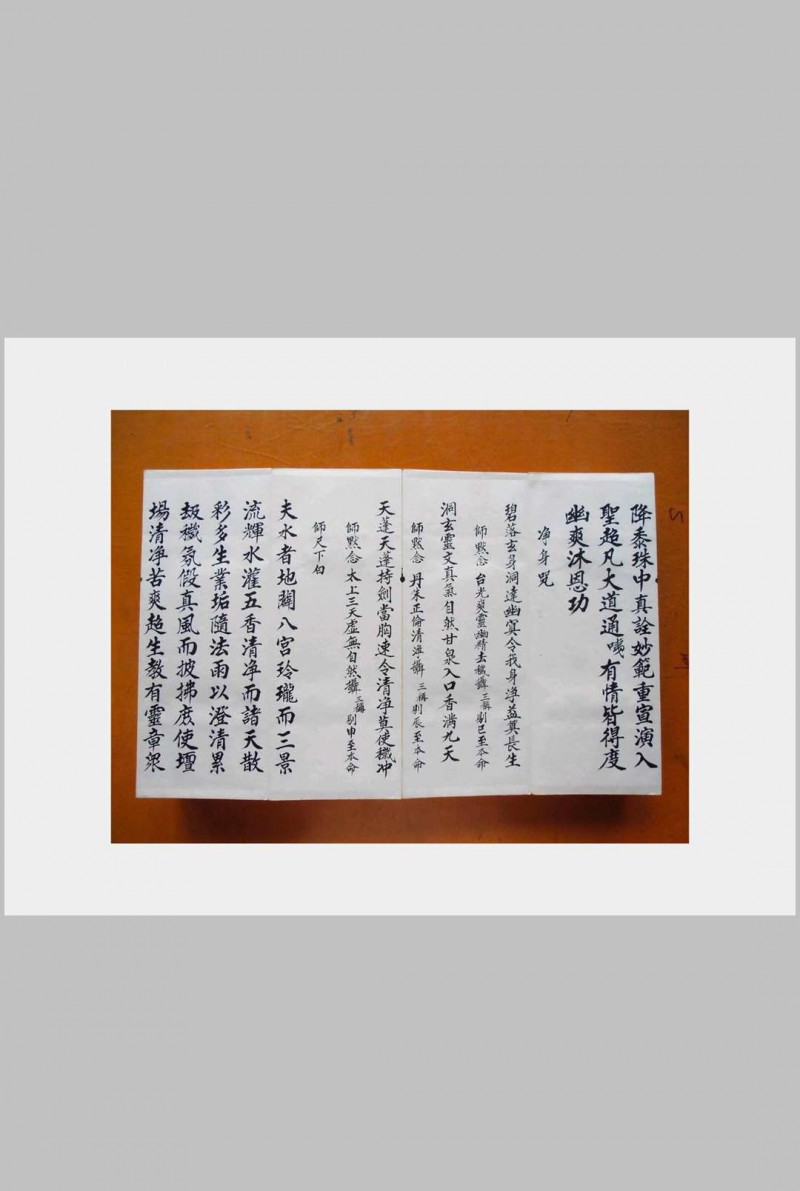 降黍珠中真詮妙範重宣演入
聖超凡大道通咦有情皆得度
幽爽沐恩功
净身咒
碧落玄身洞達幽冥令我身净益筭長生
師默念 台光爽靈幽精去穢 三稱剔巳至本命
洞玄靈文真氣自然甘泉入口香满九天
師默念 丹朱正倫清淨 三稱剔辰至本命
天蓬天蓬持劍當胸速令清净莫使穢冲
師默念 太上三天虚無自然 三稱剔申至本命
師尺下白
夫水者地闢八宮玲瓏而三景
流輝水灌五香清净而諸天散
彩多生業垢隨法雨以澄清累
劫穢氛假真風而披拂庶使壇
場清净苦爽超生教有靈章衆